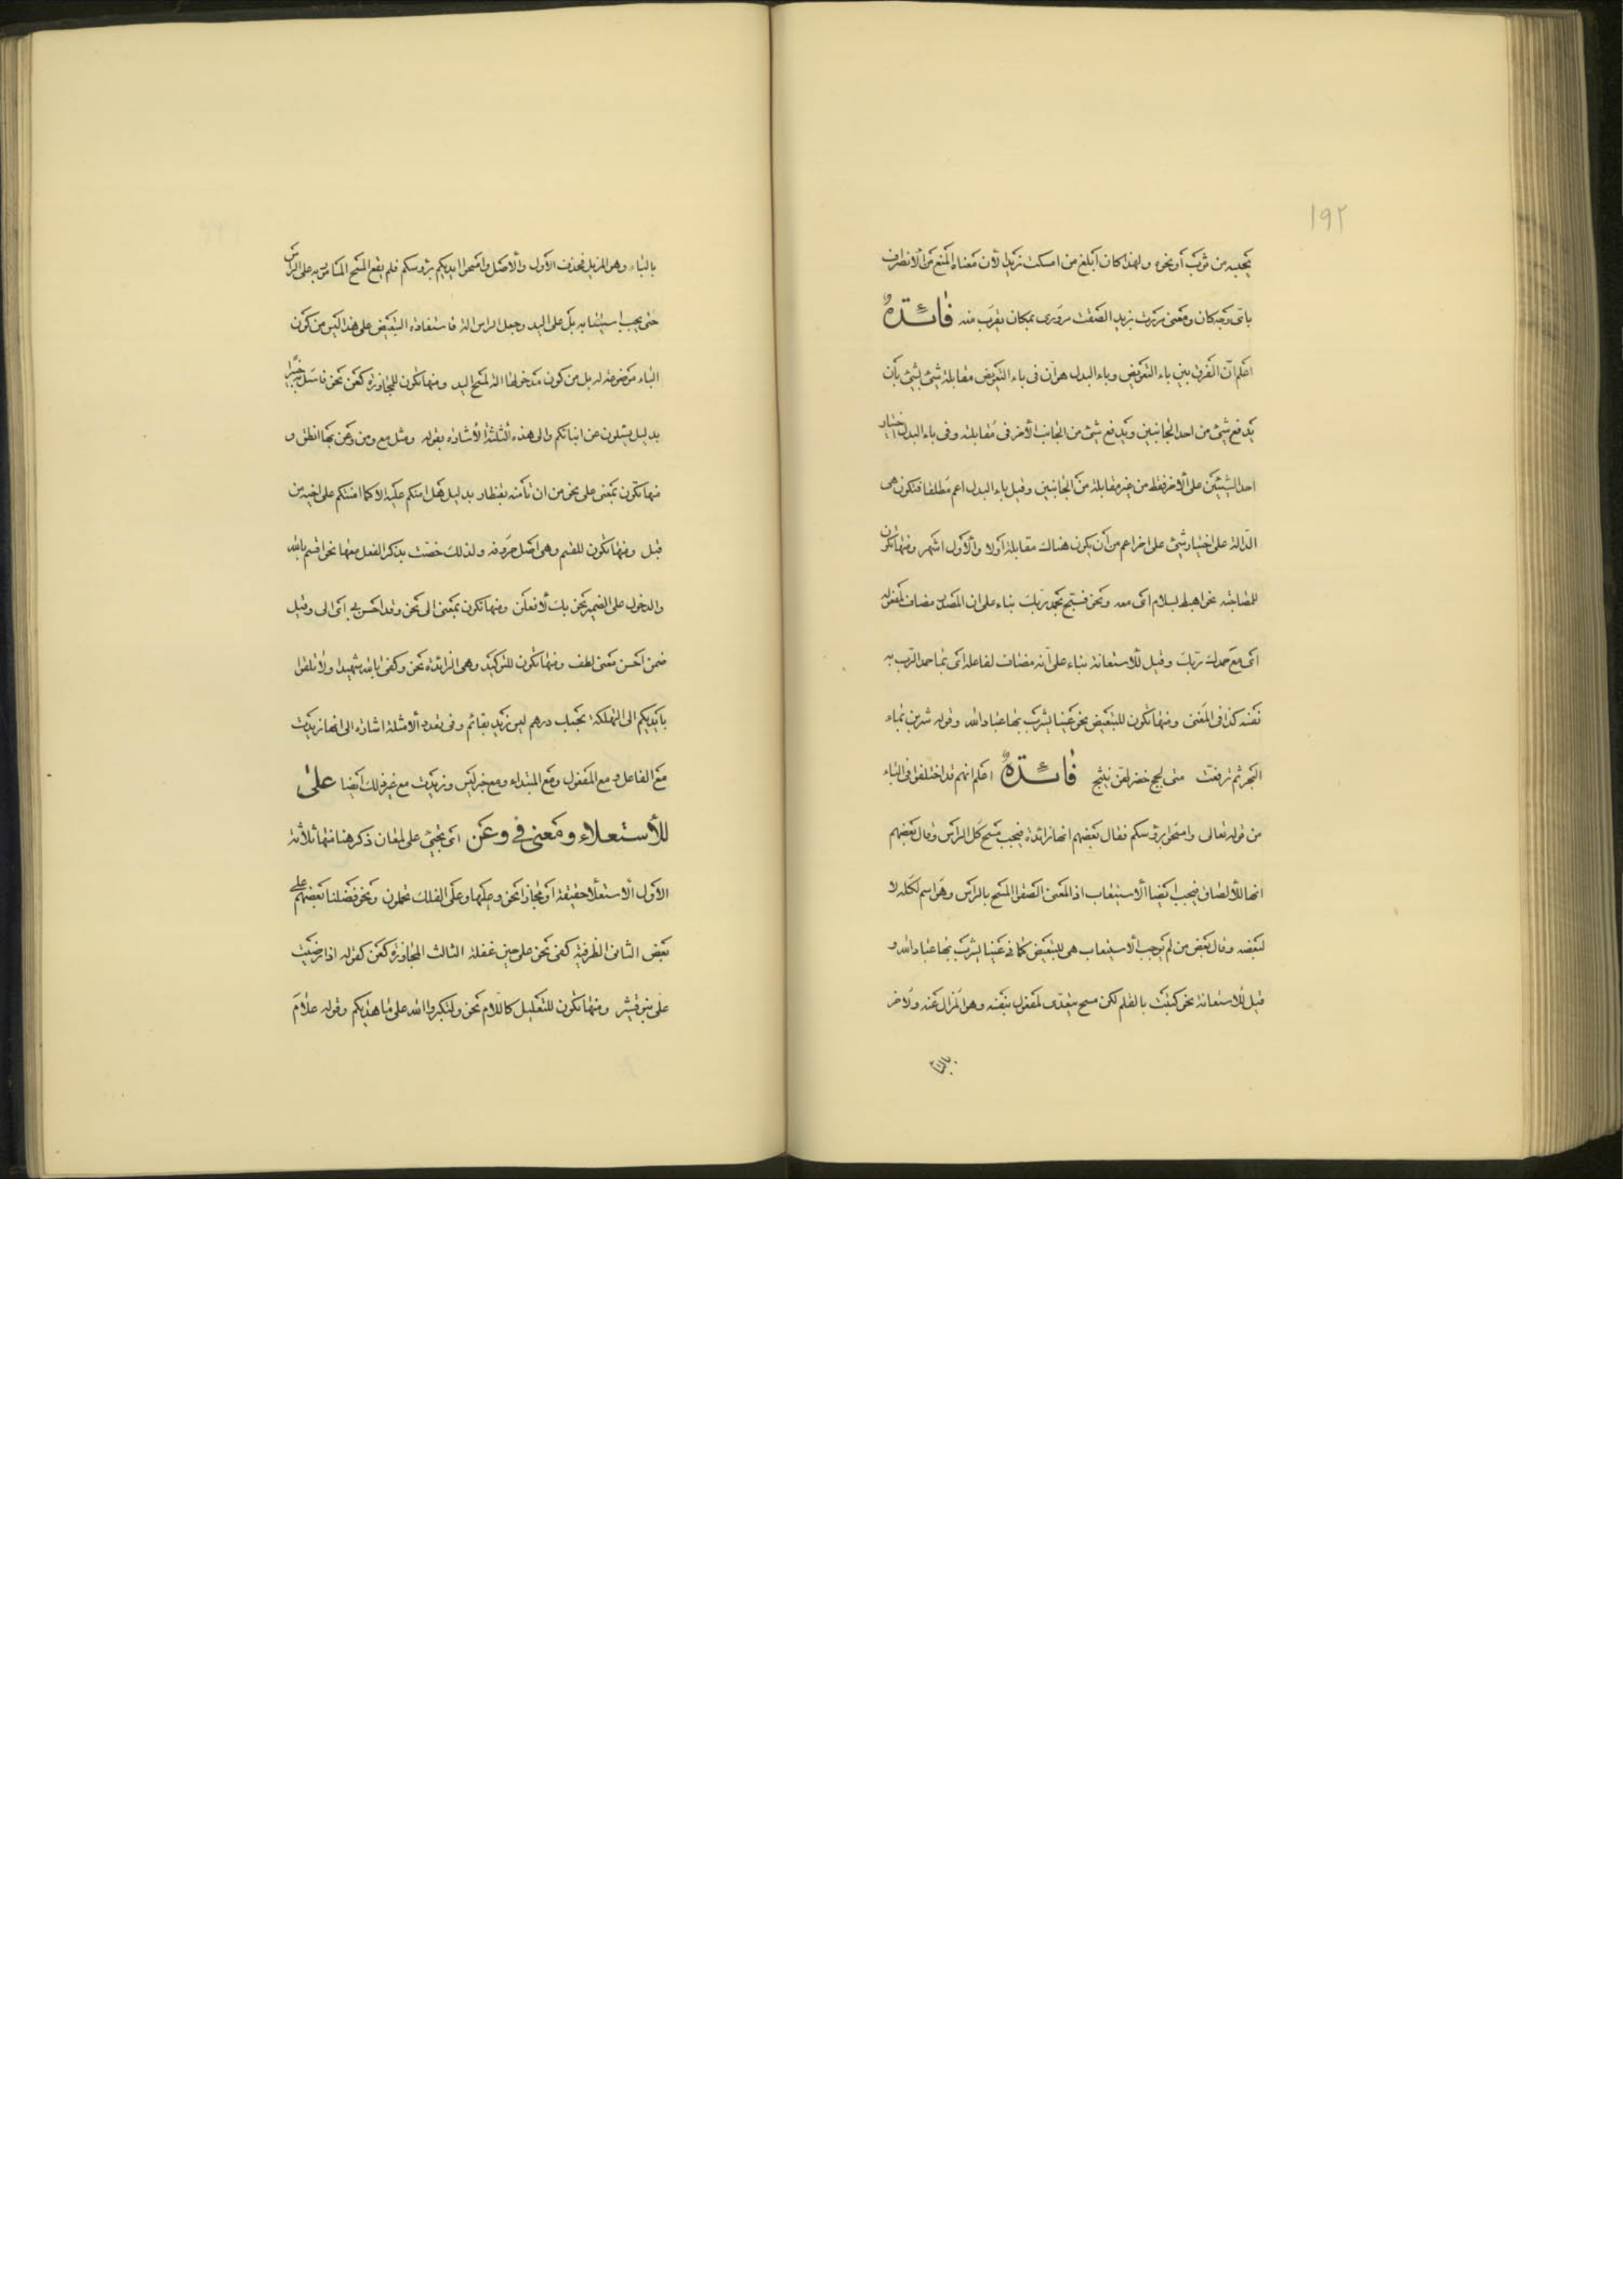 ١٩٢
يحبسه من ثوب أو نحوه ولهذا كان أبلغ من امسكت زيدا لأن معناه المنع من الانصراف
بأي وجه كان ومعنى مررت بزيد الصقت مروري بمكان يقرب منه فائدة
اعلم ان الفرق بين باء التعويض وباء البدل هو ان فى باء التعويض مقابلة شيئ بشيئ بأن
يدفع شيئ من احد الجانبين ويدفع شيئ من الجانب الأخر فى مقابلته وفى باء البدل اختيار
احد الشيئين على الاخر فقط من غير مقابلة من الجانبين وقيل باء البدل اعم مطلقا فتكون هى
الدالة على اختيار شيئ على اخر اعم من أن يكون هناك مقابلة أو لا والأول اشهر ومنها تكون
للمصاحبة نحو اهبط بسلام اى معه ونحو فسبح بحمد ربك بناء على ان المصدر مضاف لمفعوله
اى مع حمدك ربك وقيل للاستعانة بناء على انه مضاف لفاعله اى بما حمد الرب به
نفسه كذا فى المغنى ومنها تكون للتبعيض نحو عينا يشرب بها عباد الله وقوله شربن بماء
البحر ثم ترفعت متى لجج خضر لهن نئيج فائدة اعلم انهم قد اختلفوا فى الباء
من قوله تعالى وامسحوا برؤسكم فقال بعضهم انها زائدة فيجب مسح كل الرأس وقال بعضهم
انها للالصاق فيجب ايضا الاستيعاب اذ المعنى الصقوا المسح بالرأس وهو اسم لكله لا
لبعضه وقال بعض من لم يوجب الاستيعاب هى للتبعيض كما فى عينا يشرب بها عباد الله و
قيل للاستعانة نحو كتبت بالقلم لكن مسح يتعدى لمفعول بنفسه وهو المزال عنه ولاخر
بالباء
بالباء وهو المزيل فحذف الأول والأصل وامسحوا ايديكم برؤسكم فلم يقع المسح المتلبس به على الرأس
حتى يجب استيعابه بل على اليد وجعل الراس الة فاستفادة التبعيض على هذا ليس من كون
الباء موضوعة له بل من كون مدخولها الة لمسح اليد ومنها تكون للمجاوزة كعن نحو فاسئل به خبيرا
بدليل يسئلون عن انبائكم والى هذه الثلثة الأشارة بقوله ومثل مع ومن وعن بها انطق و
منها تكون بمعنى على نحو من ان تأمنه بقنطار بدليل هل امنكم عليه الا كما امنتكم على اخيه من
قبل ومنها تكون للقسم وهى اصل حروفه ولذلك خصت بذكر الفعل معها نحو اقسم بالله
والدخول على الضمير نحو بك لأفعلن ومنها تكون بمعنى الى نحو وقد احسن بى اى الى وقيل
ضمن احسن معنى لطف ومنها تكون للتوكيد وهى الزائدة نحو وكفى بالله شهيدا ولا تلقوا
بأيديكم الى التهلكة بحسبك درهم ليس زيد بقائم وفى تعدد الامثلة اشارة الى انها زيدت
مع الفاعل و مع المفعول ومع المبتداء ومع خبر ليس وزيدت مع غير ذلك ايضا على
للأستعلاء ومعنى فى وعن اى تجيئ على لمعان ذكر هنا منها ثلاثة
الأول الأستعلا حقيقة او مجازا نحو وعليها وعلى الفلك تحملون ونحو فضلنا بعضهم على
بعض الثانى الظرفية كفى نحو على حين غفلة الثالث المجاوزة كعن كقوله اذا رضيت
على بنو قشير ومنها تكون للتعليل كاللام نحو ولتكبروا الله على ما هديكم وقوله علام